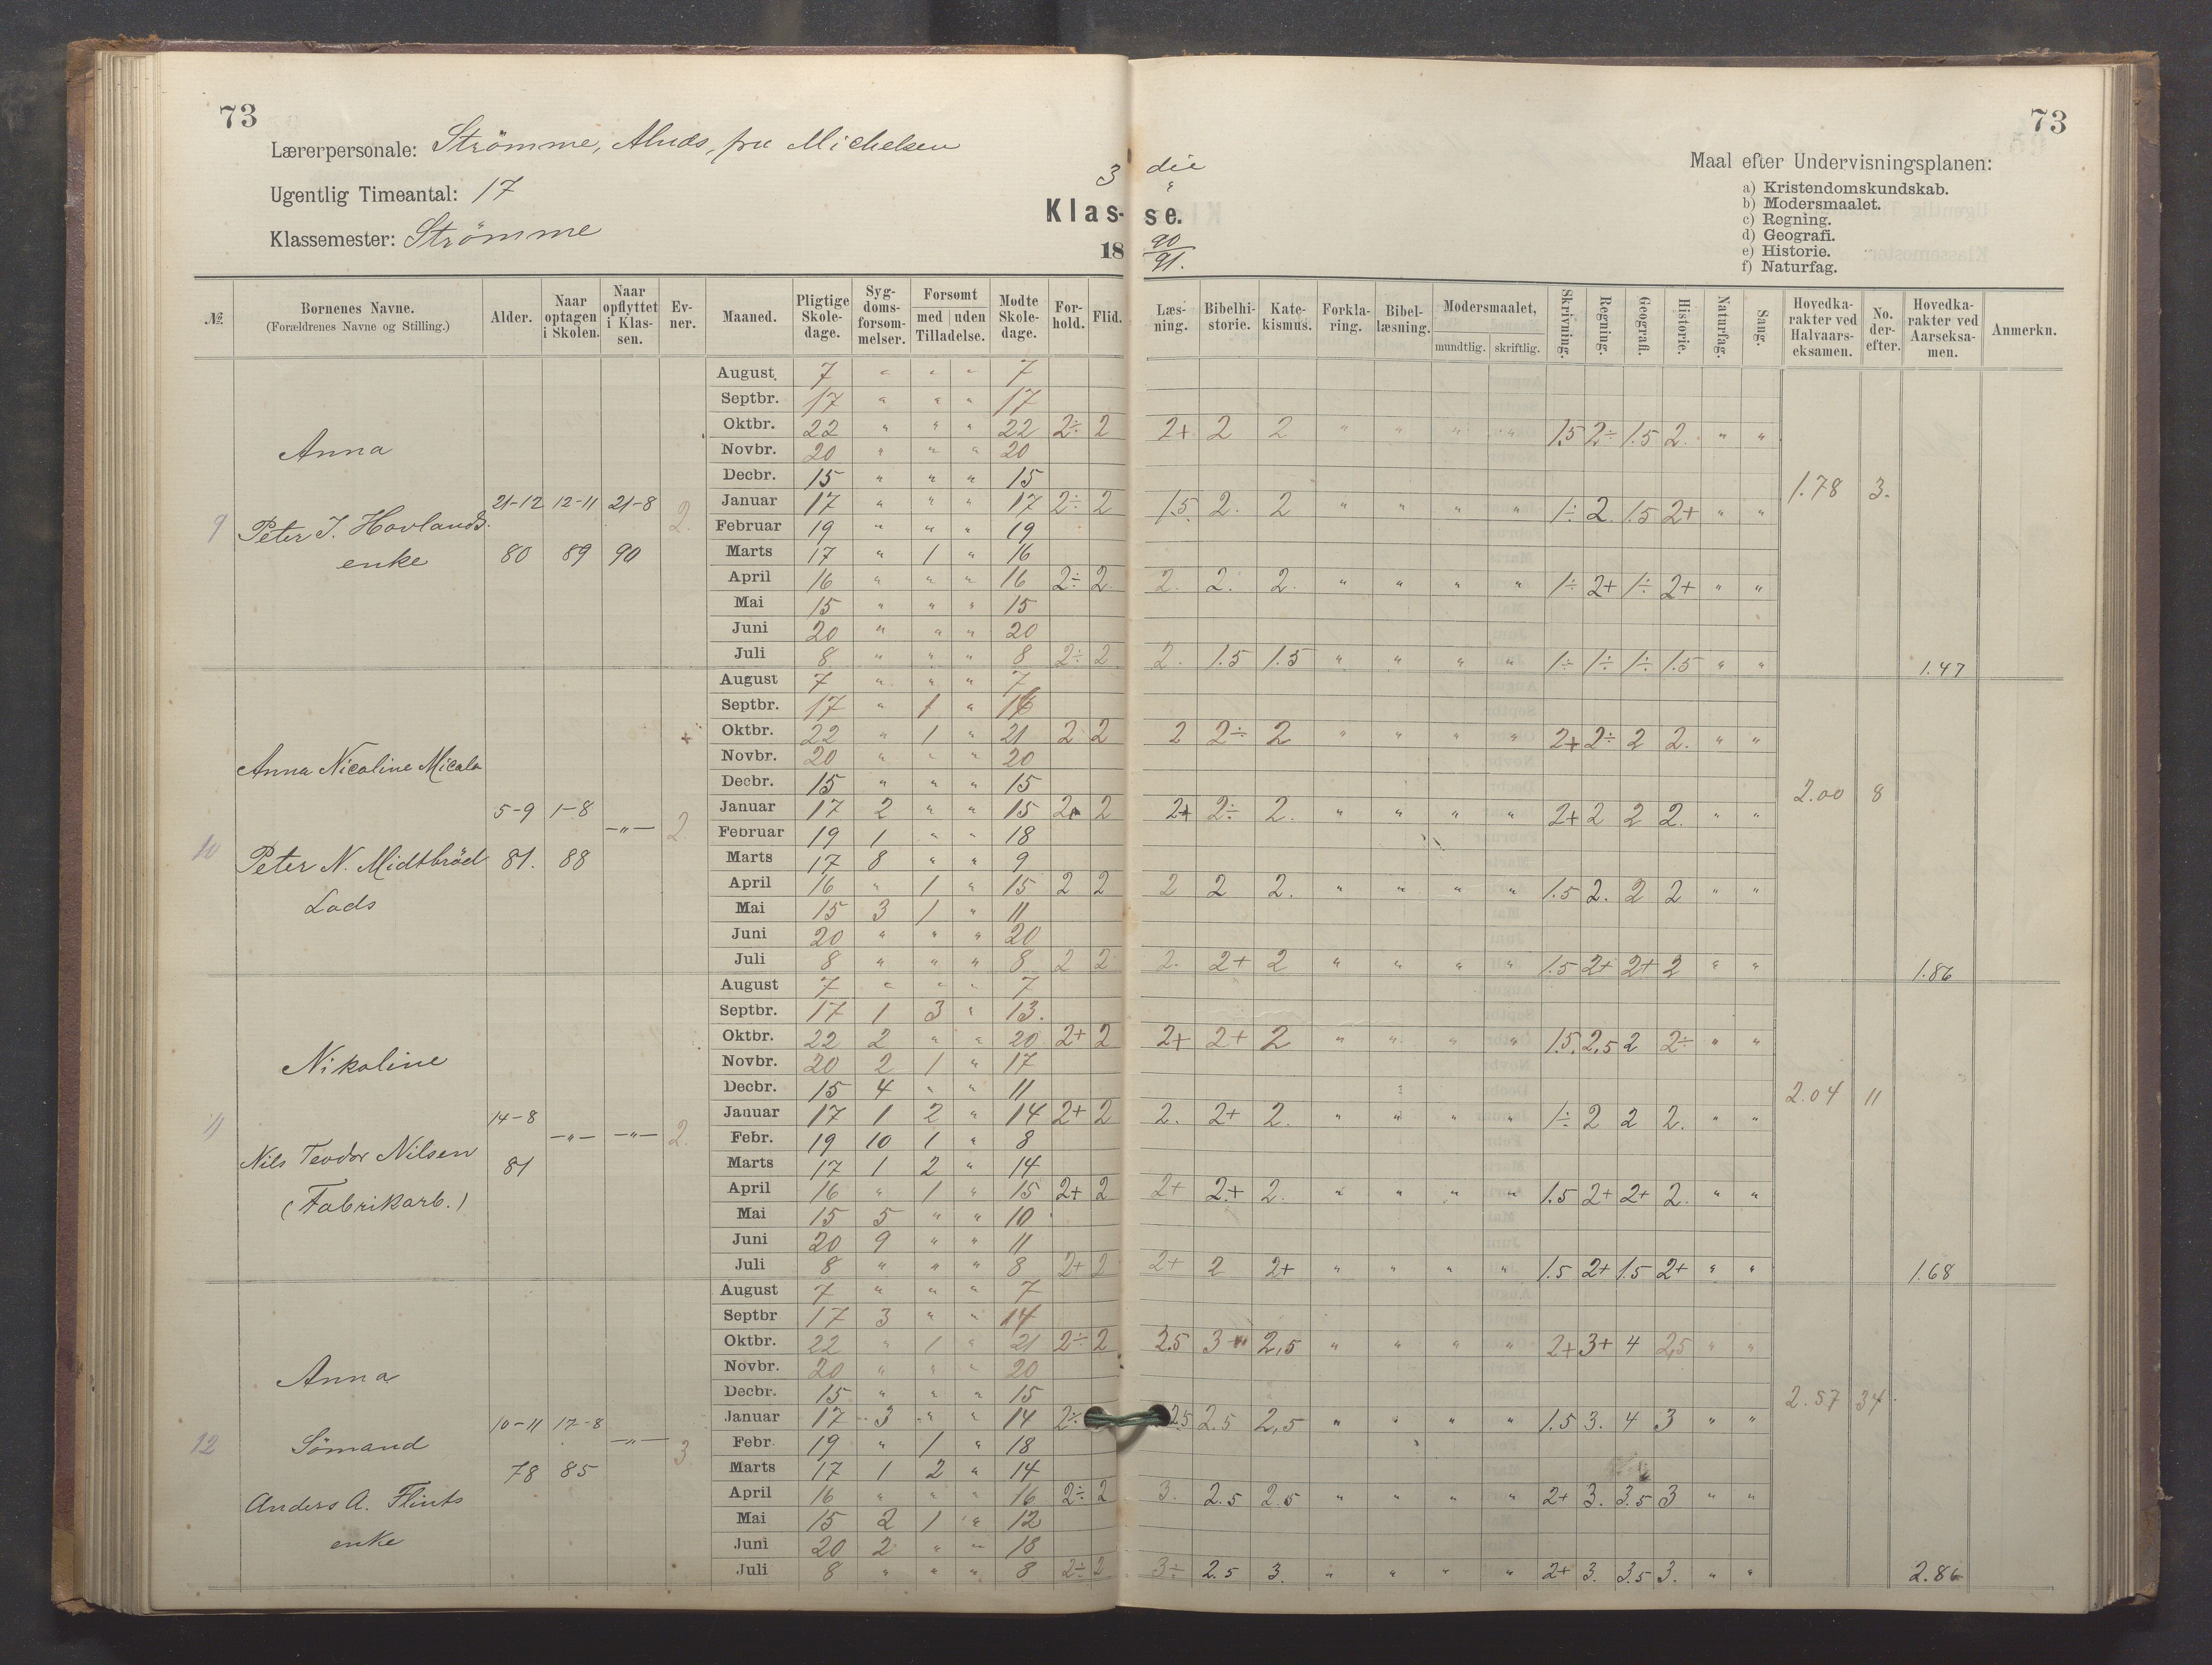 73
73
Lærerpersonale: Strömme, Amds, fru Michelsen
Ugentlig Timeantal: 17
Klassemester: Strömme
3 die
Klas- se.
18 90/91.
Maal efter Undervisningsplanen:
a) Kristendomskundskab.
b) Modersmaalet.
c) Regning.
d) Geografi.
e) Historie.
f) Naturfag.
№ Børnenes Navne. (Forældrenes Navne og Stilling.) Alder. Naar optagen i Skolen. Naar opflyttet i Klassen. Evner. Maaned. Pligtige Skoledage. Sygdomsforsømmelser. Forsømt med uden Tilladelse. Mødte Skoledage. Forhold. Flid. Læsning. Bibelhistorie. Katekismus. Forklaring. Bibellæsning. Modersmaalet, mundtlig. skriftlig. Skrivning. Regning. Geografi. Historie. Naturfag. Sang. Hovedkarakter ved Halvaarseksamen. No. derefter. Hovedkarakter ved Aarseksamen. Anmerkn.
9 Anna
Peter J. Hovlands
enke
21-12 80 12-11 89 21-8 90 2.
August 7 " " " 7
Septbr. 17 " " " 17
Oktbr. 22 " " " 22 2÷ 2 2+ 2 2 " " " " 1.5 2÷ 1.5 2. " "
Novbr. 20 " " " 20
Decbr. 15 " " " 15
1.78 3.
Januar 17 " " " 17 2÷ 2 1.5 2. 2 " " " " 1÷ 2 1.5 2+ " "
Februar 19 " " " 19
Marts 17 " 1 " 16
April 16 " " " 16 2÷ 2. 2. 2. 2. " " " " 1÷ 2+ 1÷ 2+ " "
Mai 15 " " " 15
Juni 20 " " " 20
Juli 8 " " " 8 2÷ 2 2. 1.5 1.5 " " " " 1÷ 1÷ 1÷ 1.5 " " 1.47
10 Anna Nicoline Micala
Peter N. Midtbröd
Lods
5-9 81. 1-8 88 —"— 2.
August 7 " " " 7
Septbr. 17 " 1 " 16
Oktbr. 22 " 1 " 21 2 2 2 2÷ 2 " " " " 2+ 2÷ 2 2. " "
Novbr. 20 " " " 20
Decbr. 15 " " " 15
2.00 8
Januar 17 2 " " 15 2 2+ 2÷ 2. " " " " 2+ 2 2 2. " "
Februar 19 1 " " 18
Marts 17 8 " " 9
April 16 " 1 " 15 2 2 2 2 2. " " " " 1.5 2. 2 2 " "
Mai 15 3 1 " 11
Juni 20 " " " 20
Juli 8 " " " 8 2 2 2. 2+ 2 " " " " 1.5 2+ 2+ 2 " " 1.86
11 Nikoline
Nils Teodor Nilsen
(Fabrikarb.)
14-8 81 —"— —"— 2.
August 7 " " " 7
Septbr. 17 1 3 " 13.
Oktbr. 22 2 " " 20 2+ 2 2+ 2+ 2 " " " " 1.5. 2,5 2 2÷ " "
Novbr. 20 2 1 " 17
Decbr. 15 4 " " 11
2.04 11
Januar 17 1 2 " 14 2+ 2 2. 2+ 2. " " " " 1÷ 2 2 2. " "
Febr. 19 10 1 " 8
Marts 17 1 2 " 14
April 16 " 1 " 15 2+ 2 2+ 2+ 2. " " " " 1.5 2+ 2+ 2. " "
Mai 15 5 " " 10
Juni 20 9 " " 11
Juli 8 " " " 8 2+ 2 2+ 2 2+ " " " " 1.5 2+ 1.5 2+ " " 1.68
12 Anna
Sömand
Anders A. Flints
enke
10-11 78 17-8 85 —"— 3
August 7 " " " 7
Septbr 17 3 " " 14
Oktbr. 22 " 1 " 21 2÷ 2 2.5 3 2,5 " " " " 2+ 3+ 4 2,5 " "
Novbr. 20 " " " 20
Decbr. 15 " " " 15
2.57 34.
Januar 17 3 " " 14 2÷ 2.5 2.5 2,5 " " " " 1.5 3. 4 3 " "
Febr 19 " 1 " 18
Marts 17 1 2 " 14
April 16 " " " 16 2÷ 2 3. 2.5 2.5 " " " " 2+ 3. 3.5 3 " "
Mai 15 2 1 " 12
Juni 20 2 " " 18
Juli 8 " " " 8 2÷ 2 3÷ 2.5 3. " " " " 2+ 3. 3.5 3. " " 2.86